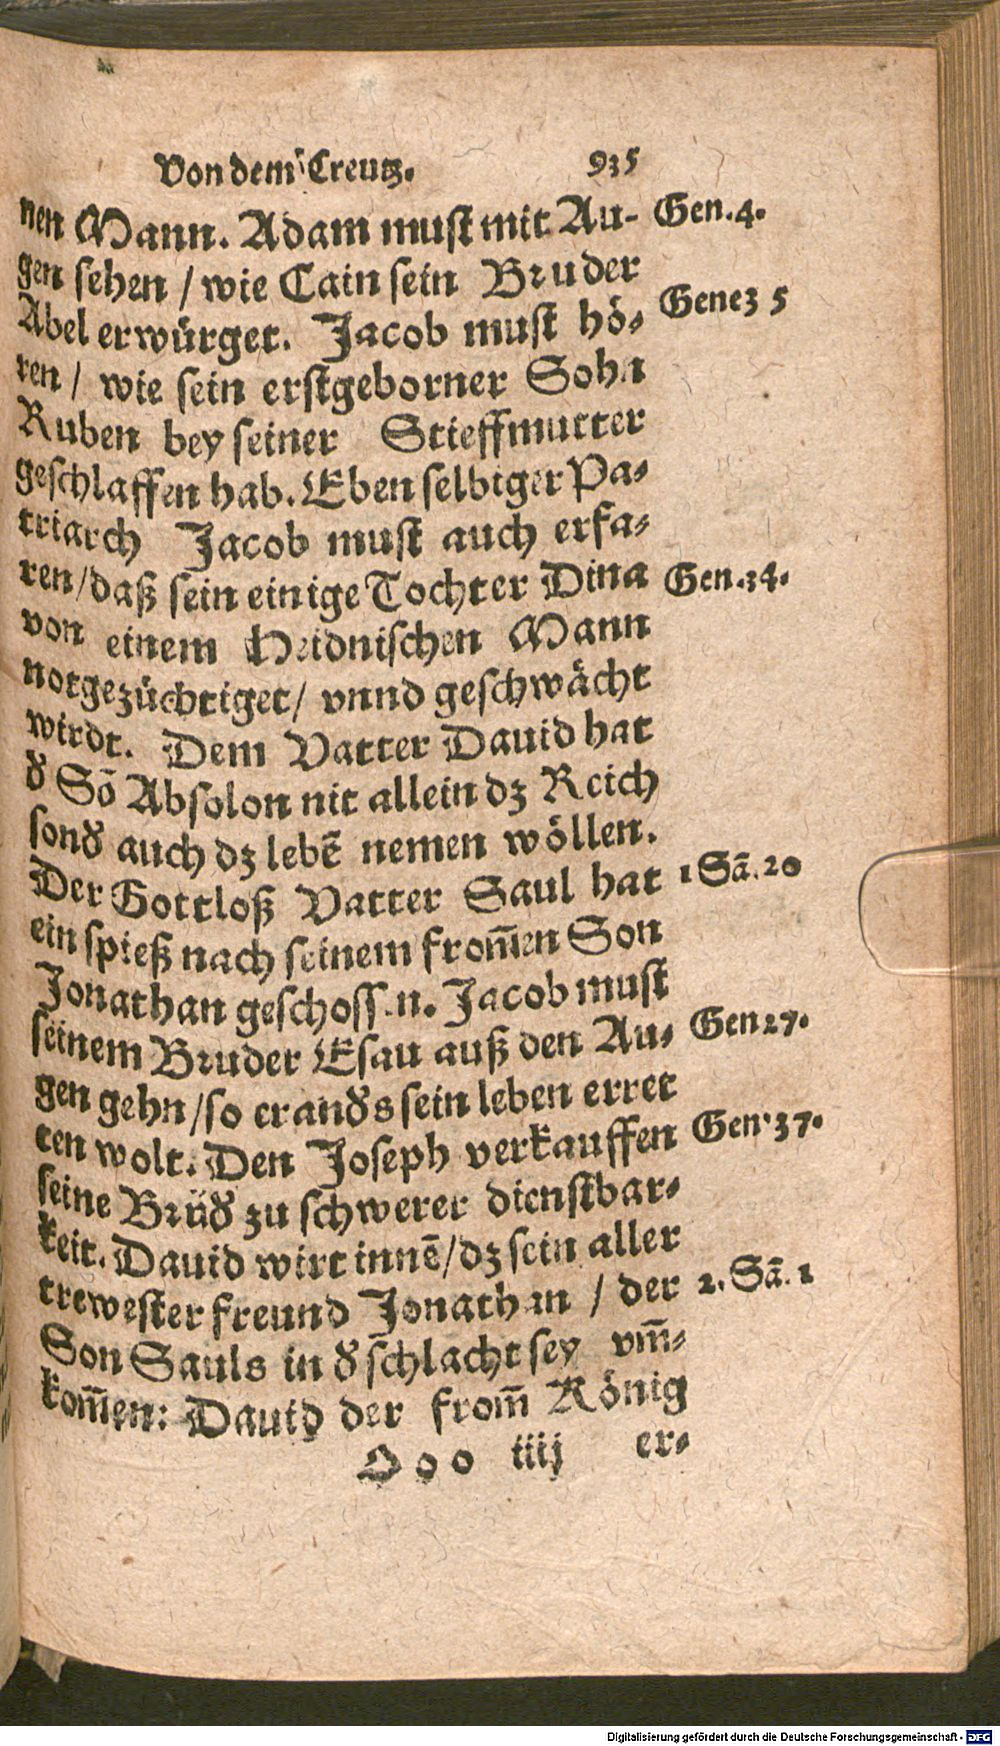 Von dem Creutz. 935
nen Mann. Adam must mit Au- Gen. 4.
gen sehen / wie Cain sein Bruder
Abel erwürget. Jacob must hö- Genez 5
ren / wie sein erstgeborner Sohn
Ruben bey seiner Stieffmutter
geschlaffen hab. Eben selbiger Pa-
triarch Jacob must auch erfa-
ren / daß sein einige Tochter Dina Gen. 34.
von einem Heidnischen Mann
notgezüchtiget / vnnd geschwächt
wirdt. Dem Vatter Dauid hat
d' Sõ Absolon nit allein dz Reich
sond' auch dz lebẽ nemen wöllen.
Der Gottloß Vatter Saul hat 1 Sã. 20
ein spieß nach seinem from̃en Son
Jonathan geschossen. Jacob must
seinem Bruder Esau auß den Au- Gen 27.
gen gehn / so er and's sein leben erret
ten wolt. Den Joseph verkauffen Gen. 37.
seine Brüd' zu schwerer dienstbar-
keit. Dauid wirt innẽ / dz sein aller
trewester freund Jonathan / der 2. Sã. 1
Son Sauls in d' schlacht sey vm̃-
kom̃en: Dauid der from̃ König
Ooo iiij er-
Digitalisierung gefördert durch die Deutsche Forschungsgemeinschaft - DFG